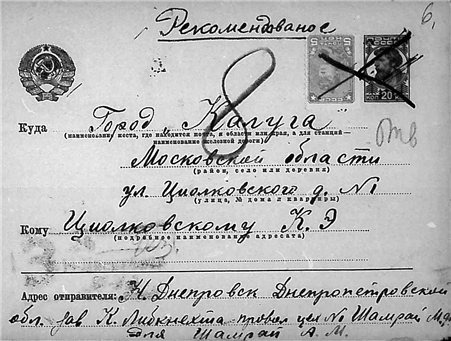 Рекомендованое
6,
5
20
8
Куда Город „Калуга"
(наименование места, где находится почта, и области или края, а для станций—
наименование железной дороги)
Московской области
(район, село или деревня)
ул. Циолковского д. №1
(улица, № дома и квартиры)
Кому Циолковскому К. Э
(подробное наименование адресата)
Адрес отправителя: Н. Днепровск Днепропетровской
обл. зав К. Либкнехта цех № Шамрай
для Шамрай А. М.